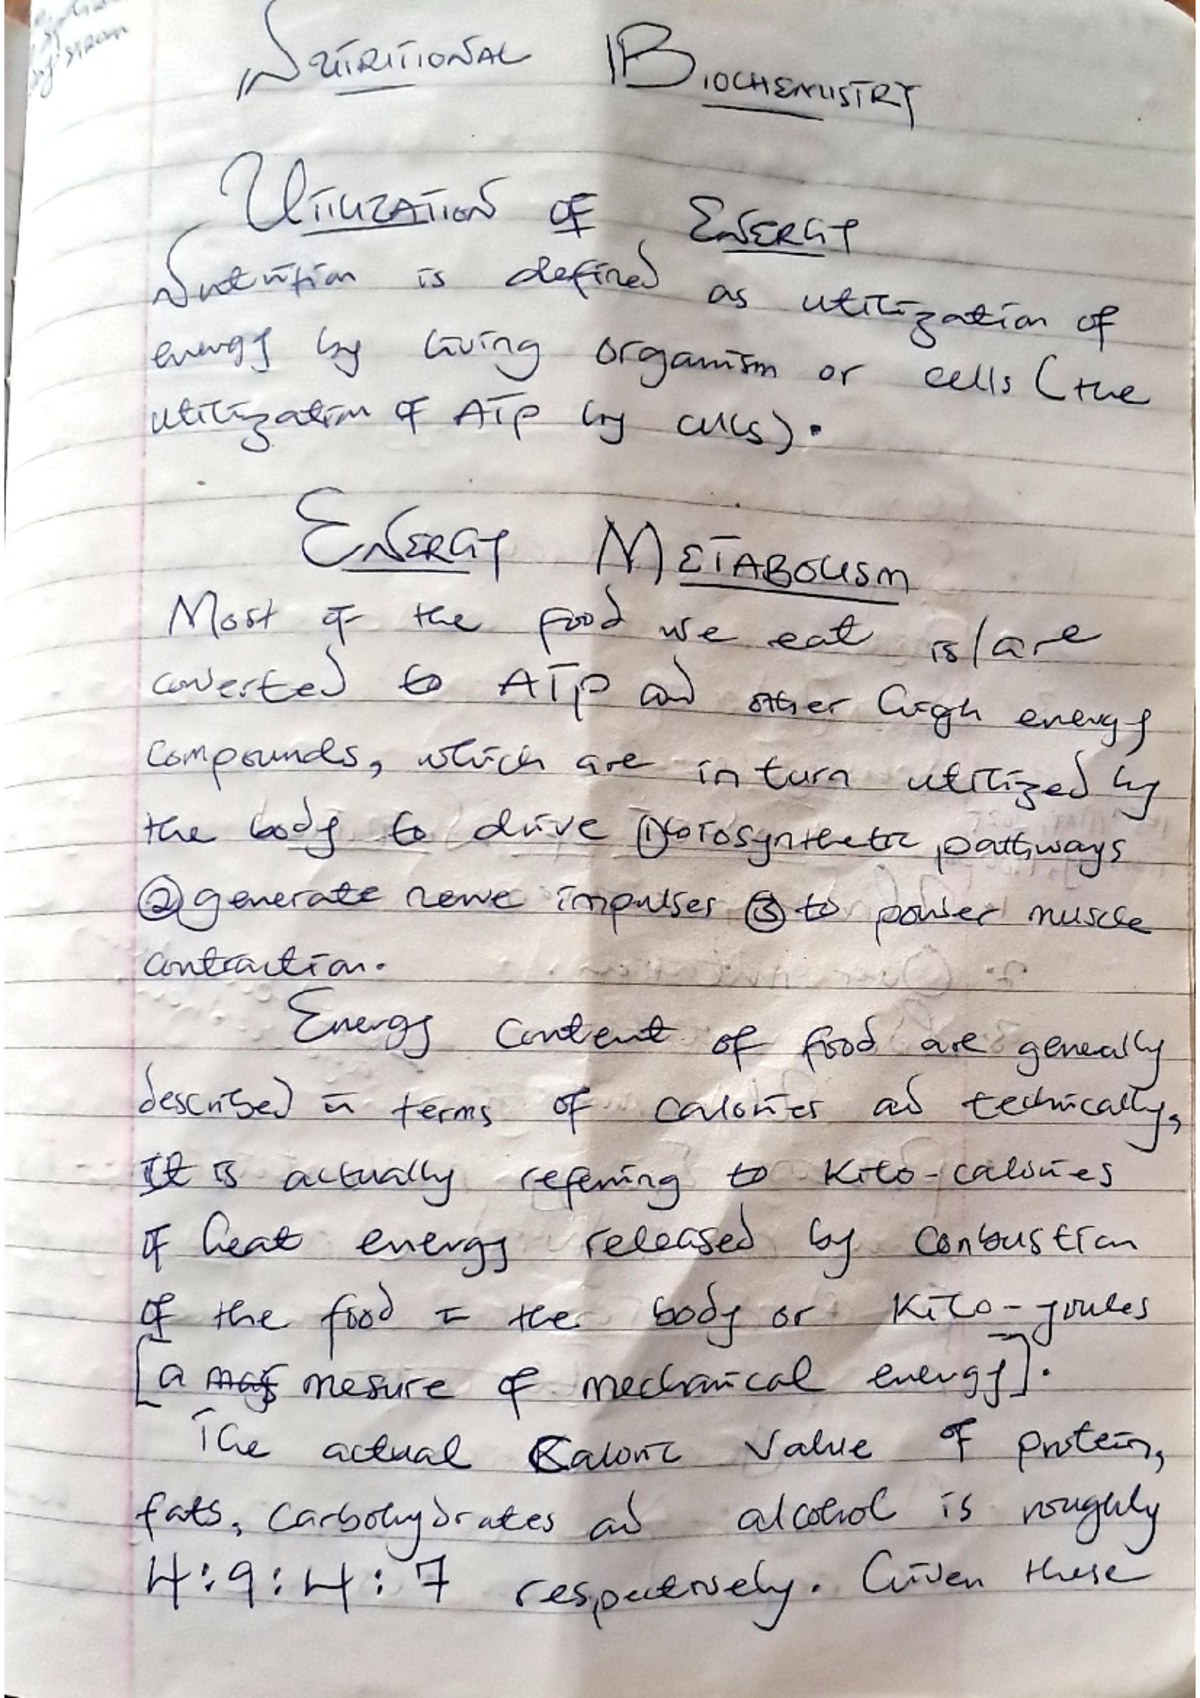 NUTRITIONAL BIOCHEMISTRY
UTILIZATION OF ENERGY
Nutrition is defined as utilization of
energy by living organism or cells (the
utilization of ATP by cells).
ENERGY METABOLISM
Most of the food we eat is/are
converted to ATP and other high energy
compounds, which are in turn utilized by
the body to drive ① biosynthetic pathways
② generate nerve impulses ③ to power muscle
contraction.
Energy content of food are generally
described in terms of calories and technically,
It is actually referring to Kilo-calories
of heat energy released by combustion
of the food in the body or Kilo-joules
[a mesure of mechanical energy].
The actual Caloric Value of protein,
fats, carbohydrates and alcohol is roughly
4:9:4:7 respectively. Given these